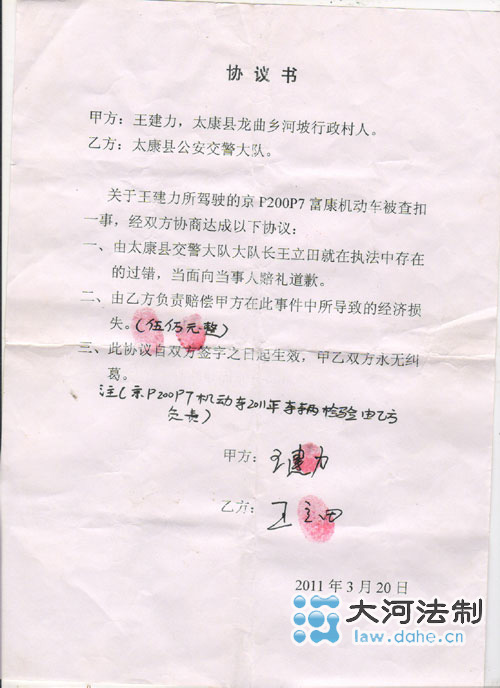 协 议 书
甲方：王建力，太康县龙曲乡河坡行政村人。
乙方：太康县公安交警大队。
关于王建力所驾驶的京P200P7富康机动车被查扣
一事，经双方协商达成以下协议：
一、由太康县交警大队大队长王立田就在执法中存在
的过错，当面向当事人赔礼道歉。
二、由乙方负责赔偿甲方在此事件中所导致的经济损
失。（伍仟元整）
三、此协议自双方签字之日起生效，甲乙双方永无纠
葛。
注（京P200P7机动车2011年车辆检验由乙方
负责）
甲方：王建力
乙方：王立田
2011年3月20日
大河法制
law.dahe.cn